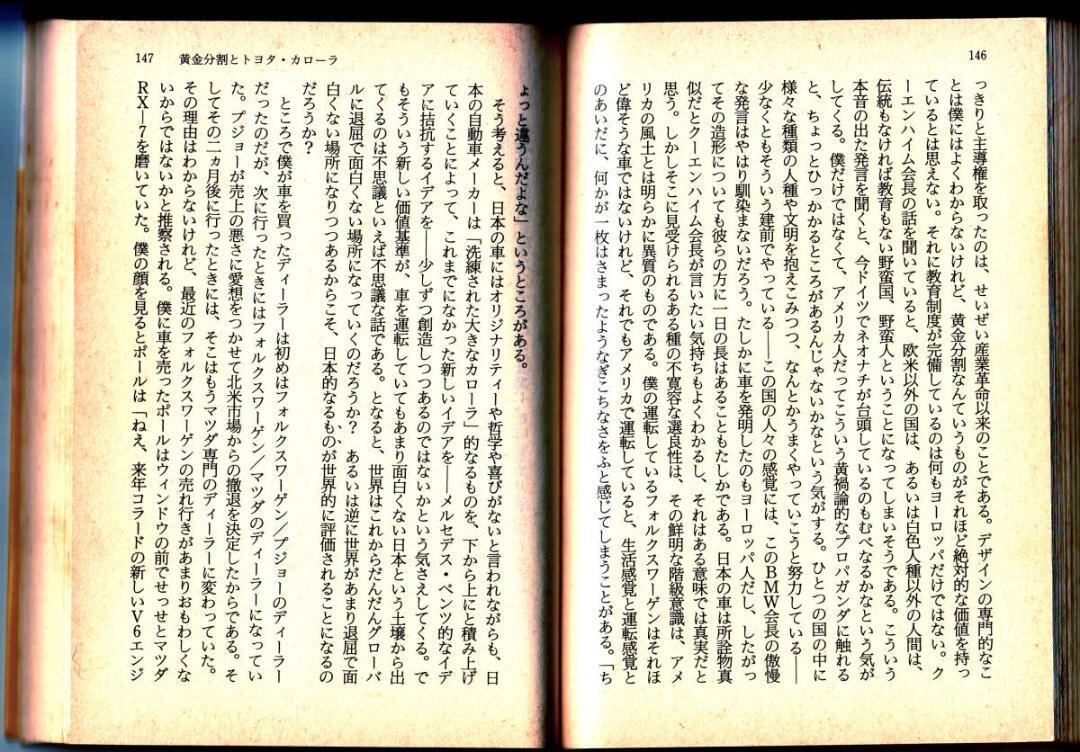 146
っきりと主導権を取ったのは、せいぜい産業革命以来のことである。デザインの専門的なこ
とは僕にはよくわからないけれど、黄金分割なんていうものがそれほど絶対的な価値を持っ
ているとは思えない。それに教育制度が完備しているのは何もヨーロッパだけではない。ク
ーエンハイム会長の話を聞いていると、欧米以外の国は、あるいは白色人種以外の人間は、
伝統もなければ教育もない野蛮国、野蛮人ということになってしまいそうである。こういう
本音の出た発言を聞くと、今ドイツでネオナチが台頭しているのもむべなるかなという気が
してくる。僕だけではなくて、アメリカ人だってこういう黄禍論的なプロパガンダに触れる
と、ちょっとひっかかるところがあるんじゃないかなという気がする。ひとつの国の中に
様々な種類の人種や文明を抱えこみつつ、なんとかうまくやっていこうと努力している――
少なくともそういう建前でやっている――この国の人々の感覚には、このBMW会長の傲慢
な発言はやはり馴染まないだろう。たしかに車を発明したのもヨーロッパ人だし、したがっ
てその造形についても彼らの方に一日の長はあることもたしかである。日本の車は所詮物真
似だとクーエンハイム会長が言いたい気持ちもよくわかるし、それはある意味では真実だと
思う。しかしそこに見受けられるある種の不寛容な選良性は、その鮮明な階級意識は、アメ
リカの風土とは明らかに異質のものである。僕の運転しているフォルクスワーゲンはそれほ
ど偉そうな車ではないけれど、それでもアメリカで運転していると、生活感覚と運転感覚と
のあいだに、何かが一枚はさまったようなぎこちなさをふと感じてしまうことがある。「ち
147　黄金分割とトヨタ・カローラ
ょっと違うんだよな」というところがある。
　そう考えると、日本の車にはオリジナリティーや哲学や喜びがないと言われながらも、日
本の自動車メーカーは「洗練された大きなカローラ」的なるものを、下から上にと積み上げ
ていくことによって、これまでになかった新しいイデアを――メルセデス・ベンツ的なイデ
アに拮抗するイデアを――少しずつ創造しつつあるのではないかという気さえしてくる。で
もそういう新しい価値基準が、車を運転していてもあまり面白くない日本という土壌から出
てくるのは不思議といえば不思議な話である。となると、世界はこれからだんだんグローバ
ルに退屈で面白くない場所になっていくのだろうか？　あるいは逆に世界があまり退屈で面
白くない場所になりつつあるからこそ、日本的なるものが世界的に評価されることになるの
だろうか？
　ところで僕が車を買ったディーラーは初めはフォルクスワーゲン／プジョーのディーラー
だったのだが、次に行ったときにはフォルクスワーゲン／マツダのディーラーになってい
た。プジョーが売上の悪さに愛想をつかせて北米市場からの撤退を決定したからである。そ
してその二ヵ月後に行ったときには、そこはもうマツダ専門のディーラーに変わっていた。
その理由はわからないけれど、最近のフォルクスワーゲンの売れ行きがあまりおもわしくな
いからではないかと推察される。僕に車を売ったポールはウィンドウの前でせっせとマツダ
RX―7を磨いていた。僕の顔を見るとポールは「ねえ、来年コラードの新しいV6エンジ